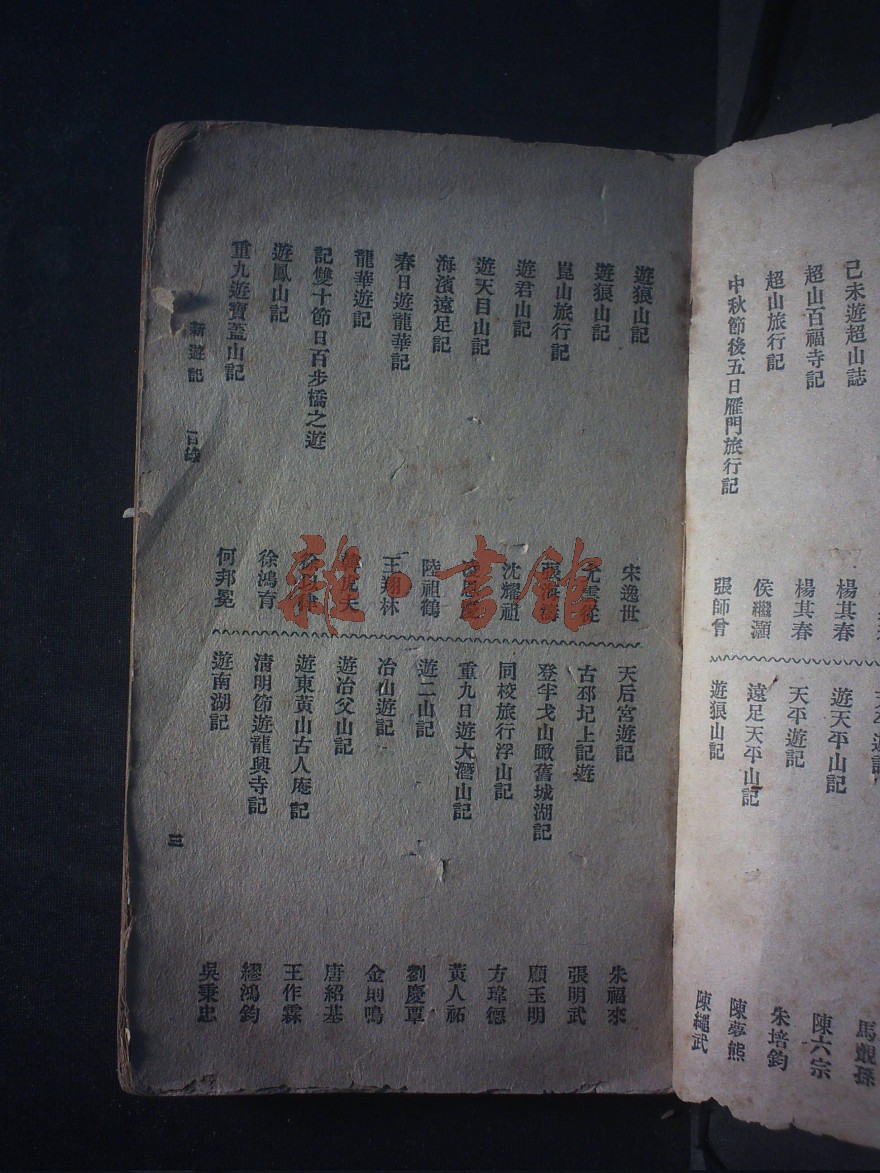 己未遊超山誌
楊其春
超山百福寺記
楊其春
超山旅行記
侯繼灝
中秋節後五日雁門旅行記
張師曾
馬覲孫
遊天平山記
陳六宗
天平遊記
朱培鈞
遠足天平山記
陳夢熊
遊狼山記
陳繩武
遊狼山記
宋逸世
遊狼山記
崑山旅行記
遊君山記
沈耀祖
遊天目山記
海濱遠足記
陸祖鶴
春日遊龍華記
王翔林
龍華遊記
記雙十節日百步橋之遊
遊鳳山記
徐鴻育
重九遊寶蓋山記
何邦冕
天后宮遊記
朱福來
古邳圯上記遊
張明武
登芈戈山瞰舊城湖記
顧玉明
同校旅行浮山記
方瑋德
重九日遊大潛山記
黃人祏
遊二山記
劉慶覃
冶山遊記
金則鳴
遊冶父山記
唐紹基
遊東黃山古人庵記
王作霖
清明節遊龍興寺記
繆鴻鈞
遊南湖記
吳秉忠
新遊記 目錄
三
雜·書館